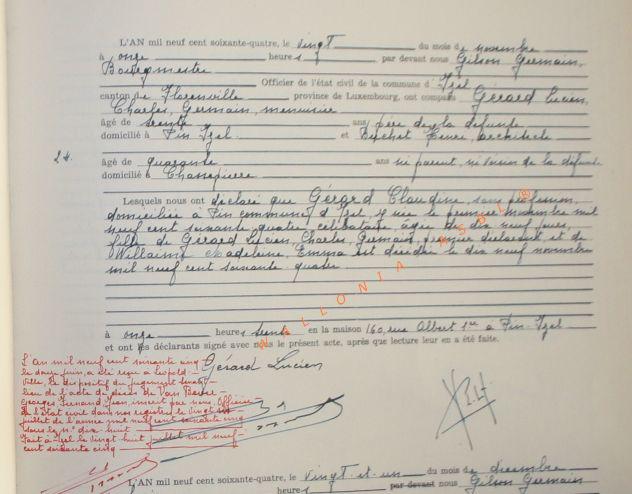 L'AN mil neuf cent soixante-quatre, le vingt du mois de novembre
à onze heures par devant nous Gilson Germain,
Bourgmestre Officier de l'état civil de la commune d' Izel
canton de Florenville province de Luxembourg, ont comparu Gérard Lucien,
Charles, Germain, menuisier
âgé de trente ans, père de la défunte
domicilié à Pin Izel et architecte
24.
âgé de quarante ans ni parent, ni voisin de la défunte
domicilié à Chassepierre
Lesquels nous ont déclaré que Gérard Claudine, sans profession,
domiciliée à Pin commune d'Izel, y née le premier novembre mil
neuf cent soixante quatre, célibataire, âgée de dix neuf jours,
fille de Gérard Lucien, Charles, Germain, premier déclarant et de
Willaime Madeleine, Emma est décédée le dix neuf novembre
mil neuf cent soixante quatre
WALLONIA ASBL ®
à onze heures trente en la maison 160, rue Albert 1er à Pin-Izel
et ont les déclarants signé avec nous le présent acte, après que lecture leur en a été faite.
Gérard Lucien
L'An mil neuf cent soixante cinq
le douze juin, a été reçu à Léopold-
ville, le dispositif du jugement tenant
lieu de l'acte de décès de Van
Georges Fernand Jean, inscrit par nous, Officier
de l'état civil dans nos registres le vingt
juillet de l'année mil neuf cent soixante cinq
sous le n° dix huit
Fait à Izel le vingt huit juillet mil neuf
cent soixante cinq
L'AN mil neuf cent soixante-quatre, le vingt-et-un du mois de décembre
heures par devant nous Gilson Germain